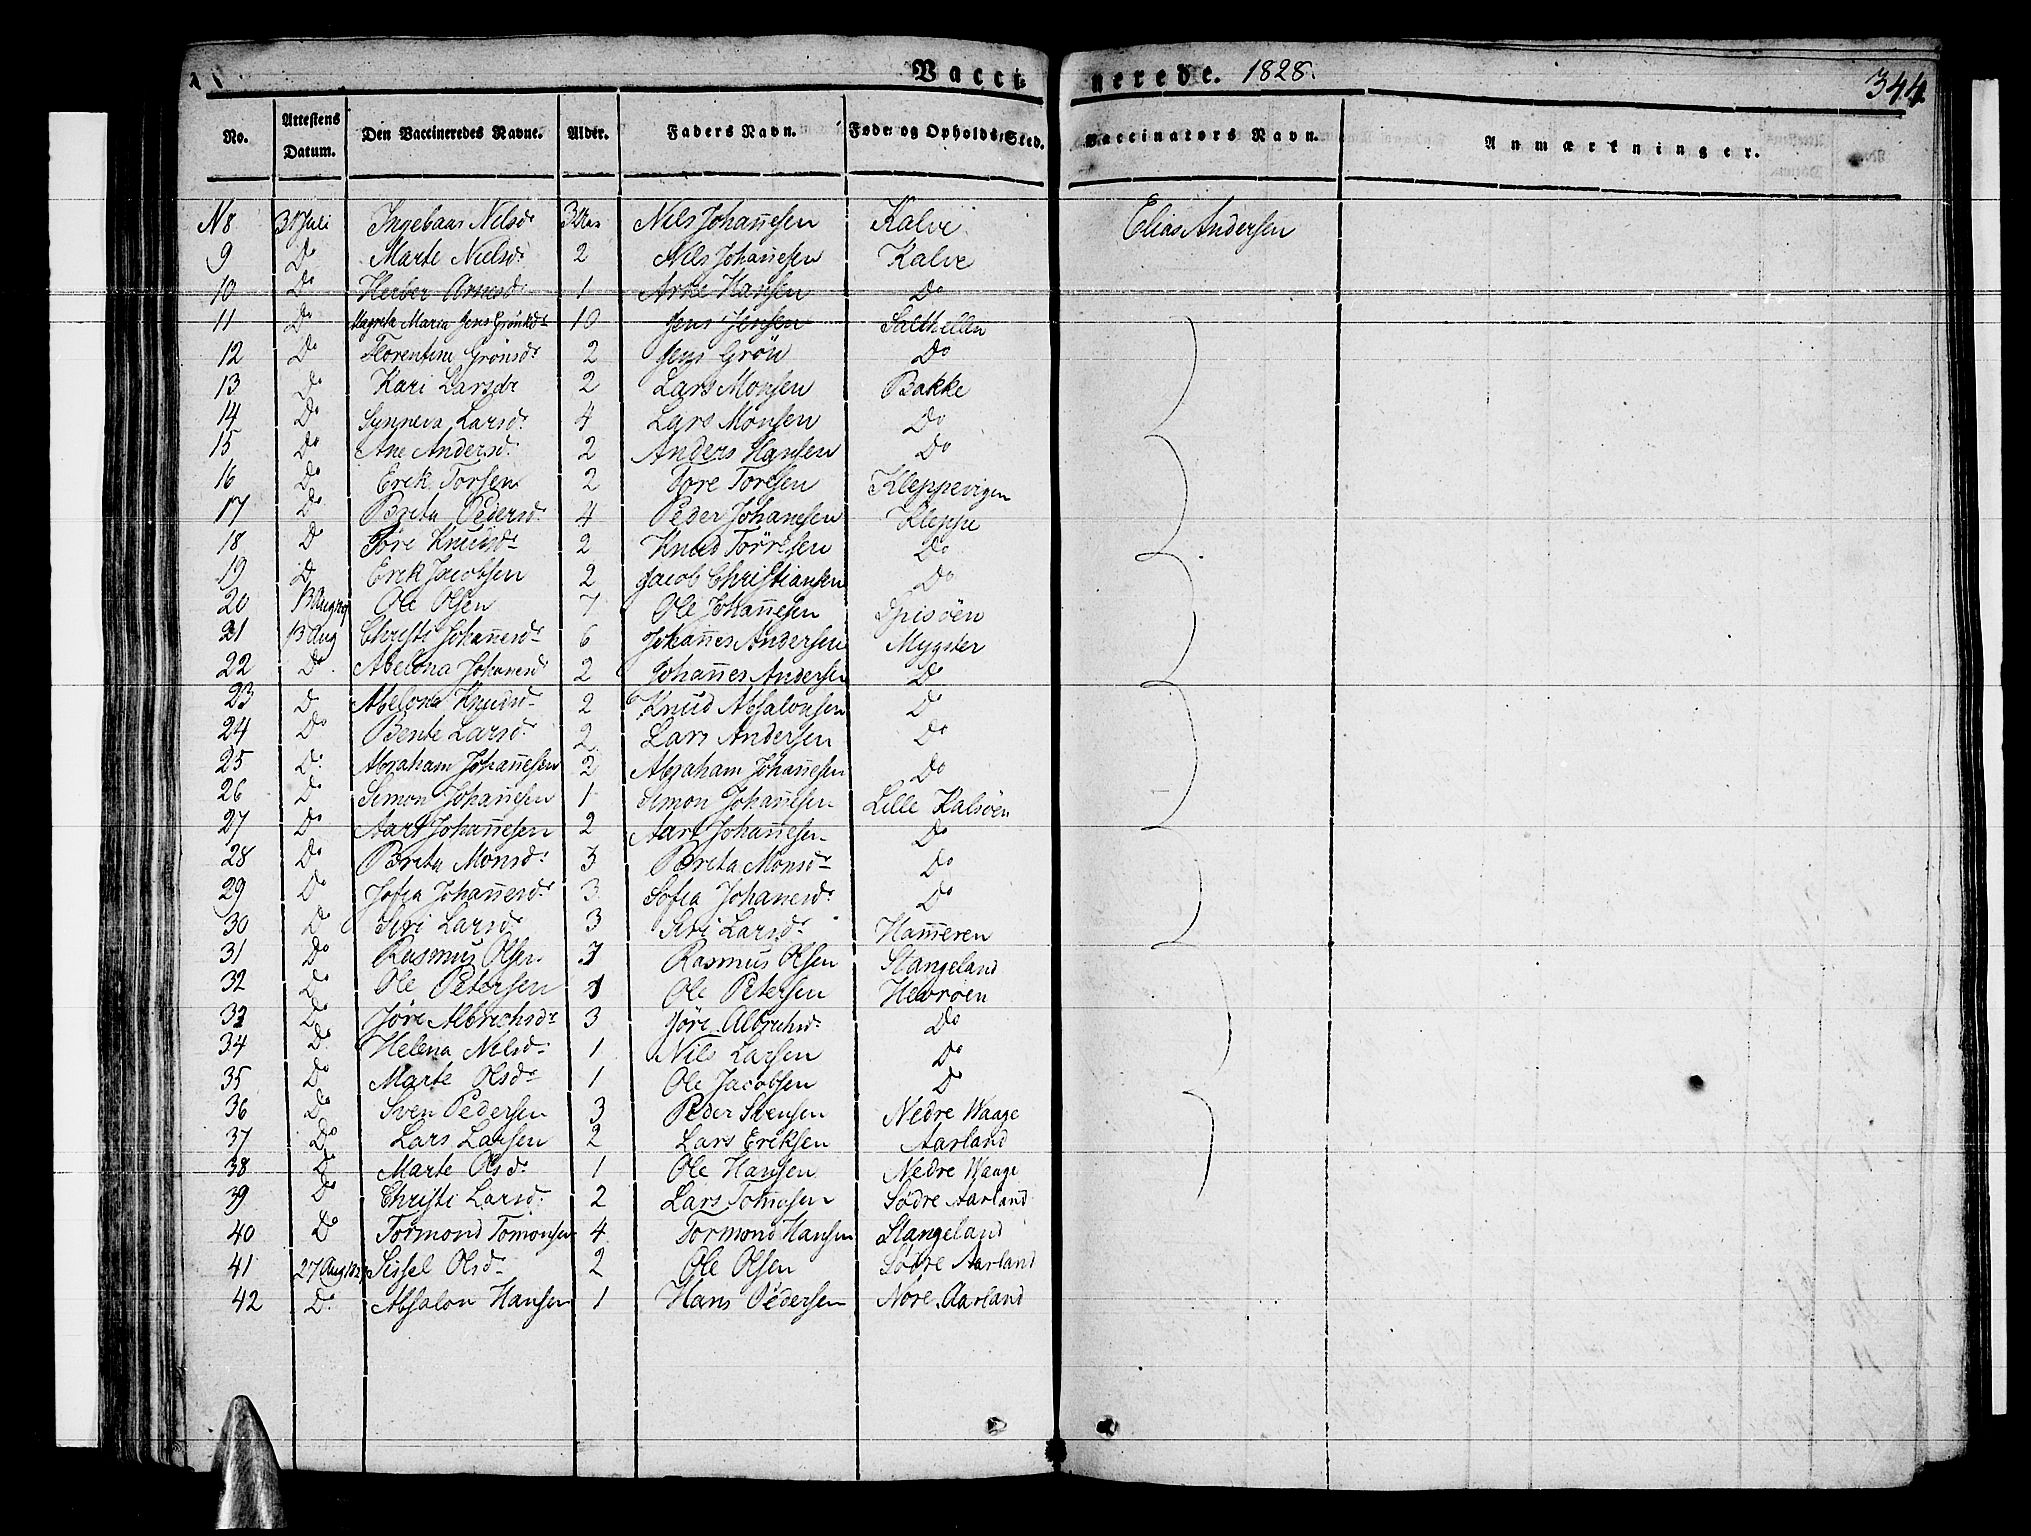 Vaccinerede. 1828. 344
No. Attestens Datum. Den Vaccineredes Navne. Alder. Faders Navn. Føde- og Opholds-Sted. Vaccinators Navn. Anmærkninger.
N 8 31 Juli Nilsdr 3 Nils Johan̄esen Kalve Elias Andersen
9 Do Marte Nielsdr 2 Nils Johan̄esen Kalve
10 Do Herber Arnesdr 1 Arne Hansen Do
11 Do Magreta Maria Jens 10 Jens Jensen Salthellen
12 Do Florentine Grönsdr 2 Jens Grön Do
13 Do Kari Larsdr 2 Lars Monsen Bakke
14 Do Synneva Larsdr 4 Lars Monsen Do
15 Do Ane Andersdr 2 Anders Hansen Do
16 Do Erek Torsen 2 Tore Toresen Kleppevigen
17 Do Breta Pedersdr 4 Peder Johanesen Kleppe
18 Do Töre Knudsdr 2 Knud Törresen Do
19 Do Erek Jacobsen 2 Jacob Christiansen Do
20 13 Aug Ole Olsen 7 Ole Johan̄esen Spisöen
21 13 Aug Christi Johan̄esdr 6 Johan̄es Andersen Mygster
22 Do Abelona Johanesdr 2 Johan̄es Andersen Do
23 Do Abelona Knudsdr 2 Knud Absalonsen Do
24 Do Bente Larsdr 2 Lars Andersen Do
25 Do Abraham Johan̄esen 2 Abraham Johan̄esen Do
26 Do Simon Johan̄esen 1 Simon Johan̄esen Lille Kalsöen
27 Do Johan̄esen 2 Johan̄esen Do
28 Do Breta Monsdr 3 Breta Monsdr Do
29 Do Sofia Johan̄esdr 3 Sofia Johanesdr Do
30 Do Siri Larsdr 3 Siri Larsdr Ham̄eren
31 Do Rasmus Olsen Rasmus Olsen Stangeland
32 Do Ole Petersen 1 Ole Petersen Hevröen
33 Do Jöre Albrechsdr 3 Jöre Albrechsdr Do
34 Do Helena Nilsdr 1 Nils Larsen Do
35 Do Marte Olsdr 1 Ole Jacobsen Do
36 Do Sven Pedersen 3 Peder Svensen Nedre Waage
37 Do Lars Larsen 2 Lars Ereksen Aarland
38 Do Marte Olsdr 1 Ole Hansen Nedre Waage
39 Do Christi Larsdr 2 Lars Södre Aarland
40 Do Tormond Tomonsen 4 Tormond Hansen Stangeland
41 27 Aug Sissel Olsdr 2 Ole Olsen Södre Aarland
42 Do Absalon Hansen 1 Hans Pedersen Nöre Aarland